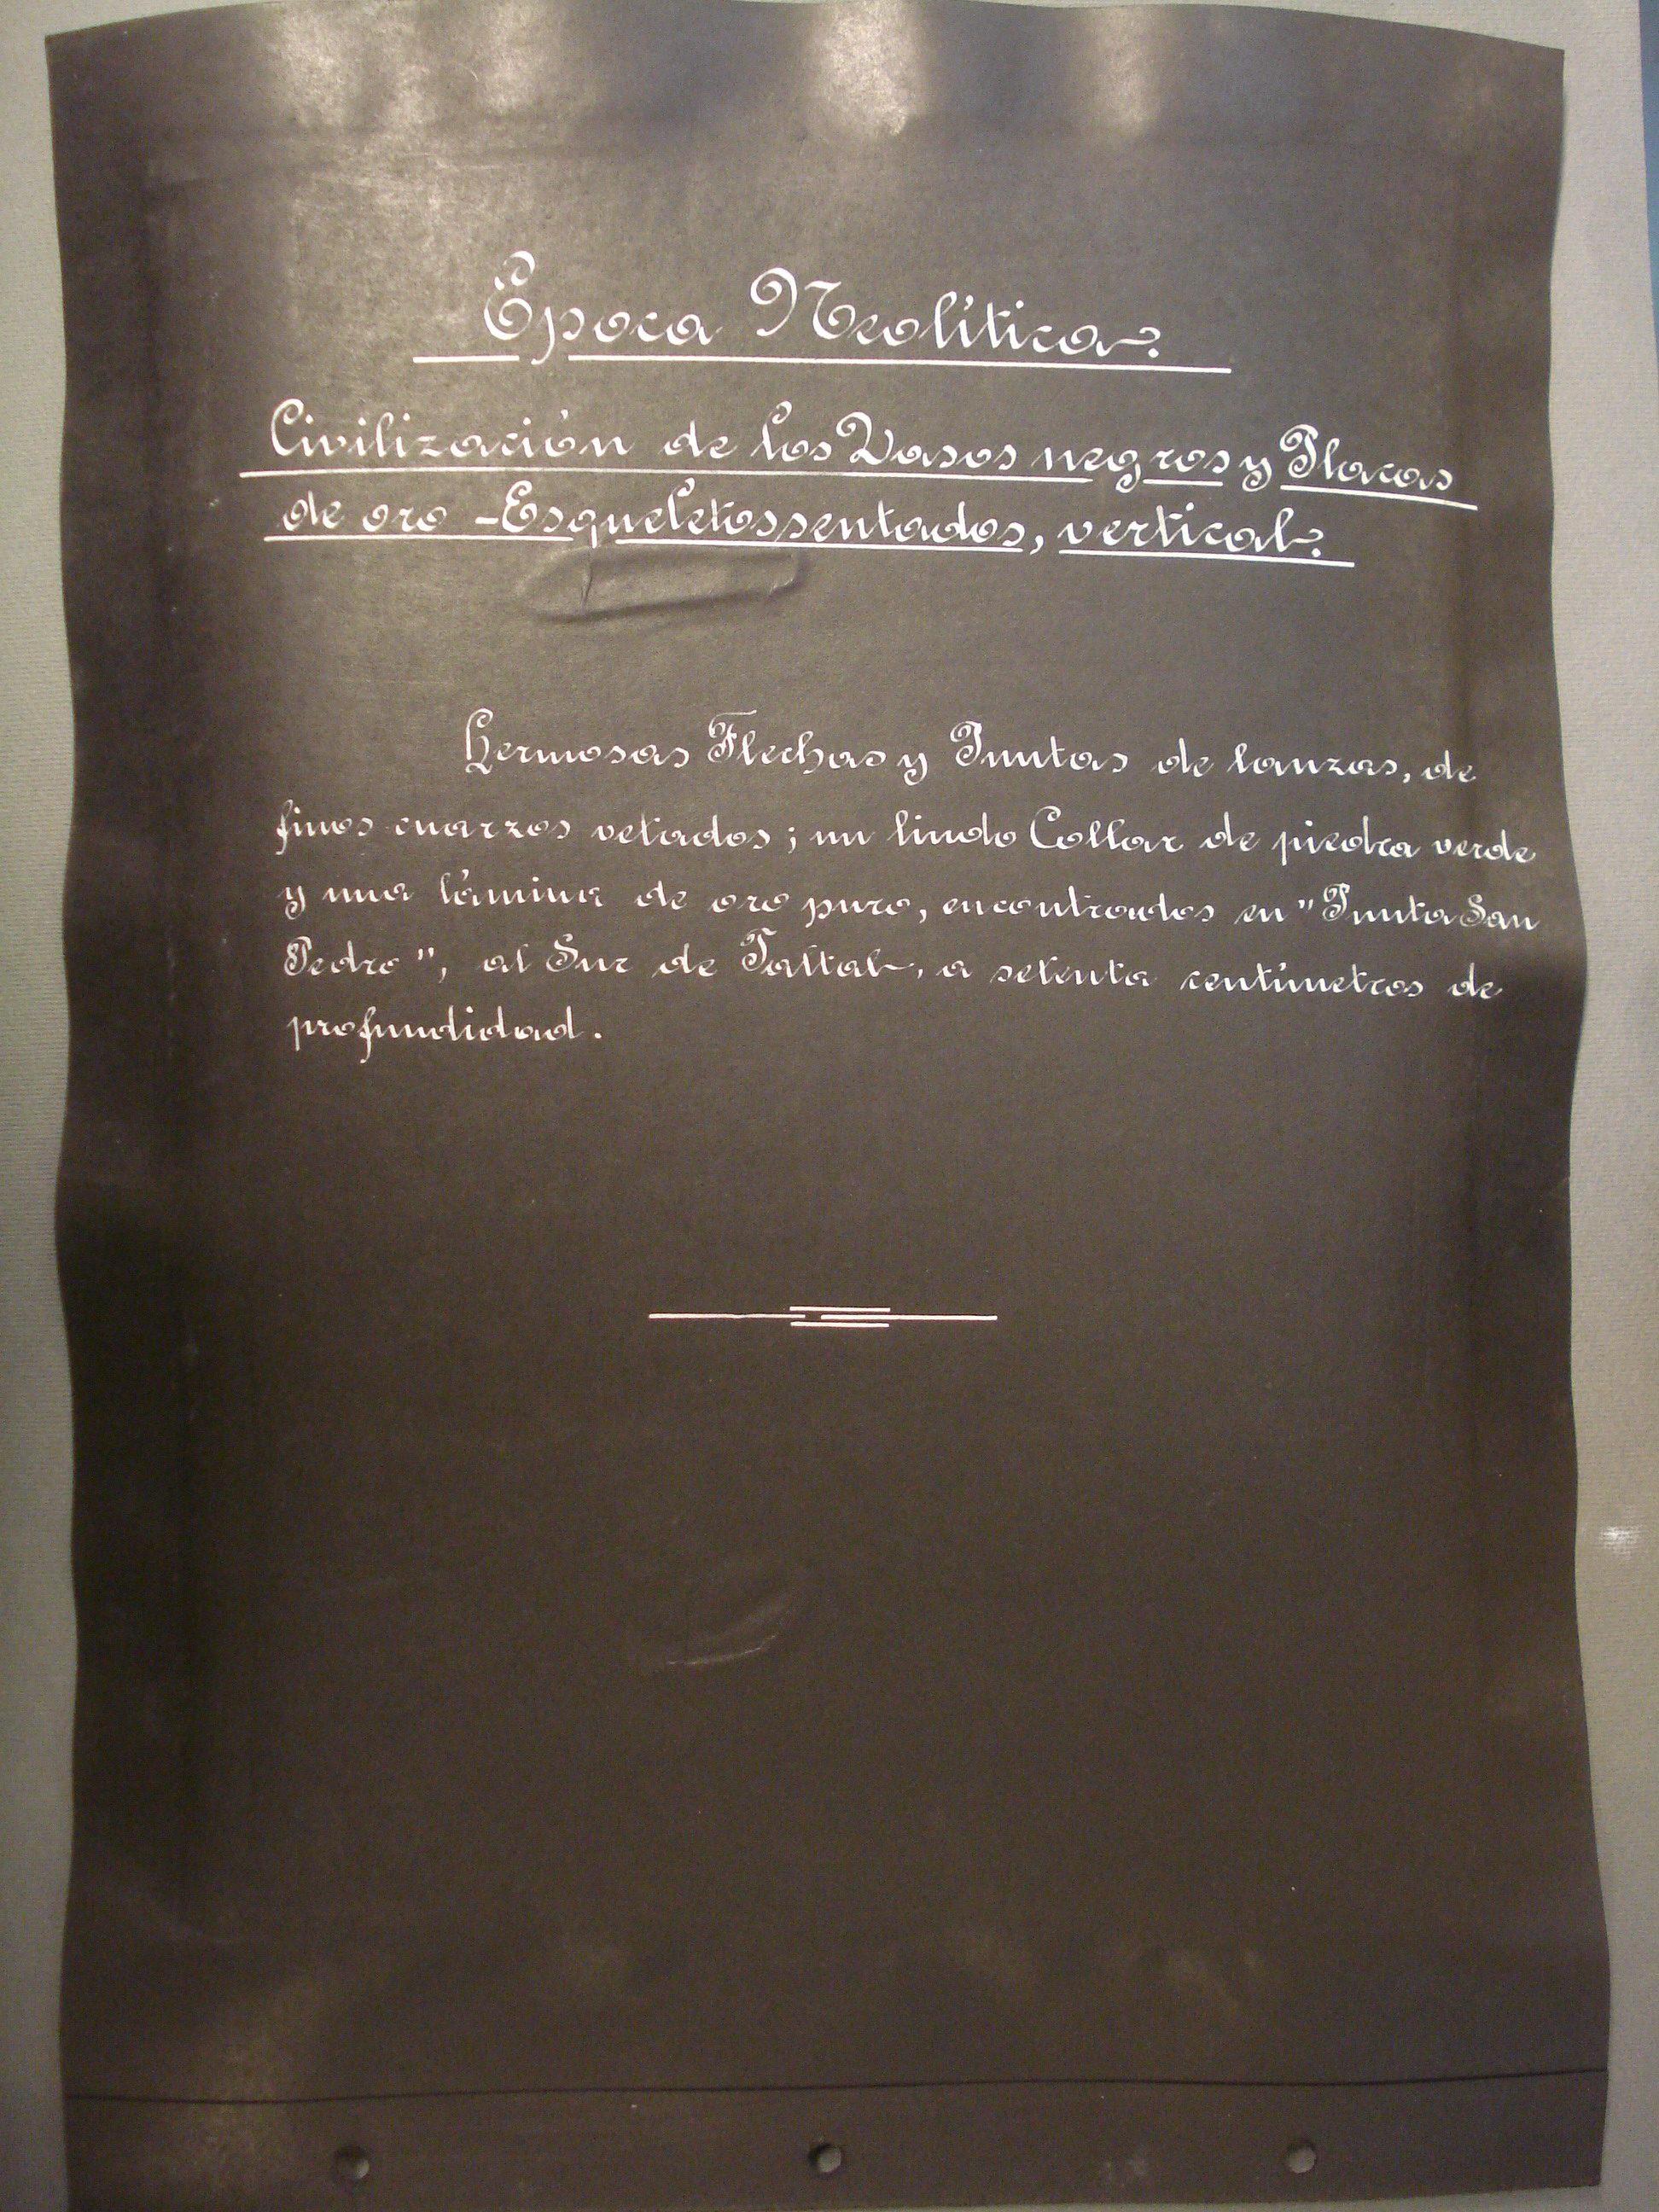 Epoca Neolítica.
Civilización de los Vasos negros y Placas
de oro - Esqueletos sentados, vertical.
Hermosas Flechas y Puntas de lanzas, de
finos cuarzos vetados; un lindo Collar de piedra verde
y una lámina de oro puro, encontrados en "Punta San
Pedro", al Sur de Taltal, a setenta centímetros de
profundidad.